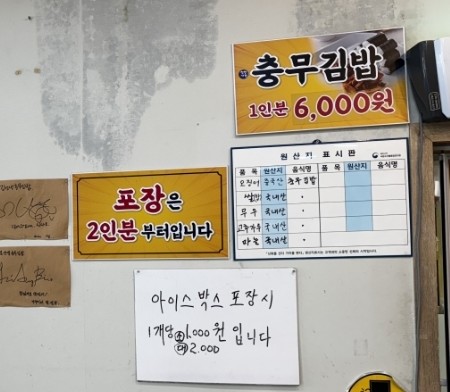 충무김밥
1인분 6,000원
포장은
2인분부터입니다
원산지 표시판
품 목 원산지 음식명 품 목 원산지 음식명
오징어 중국산 충무김밥
쌀 국내산 〃
무우 국내산 〃
고추가루 국내산 〃
마늘 국내산 〃
아이스박스 포장시
1개당 소 1,000원 입니다
대 2,000